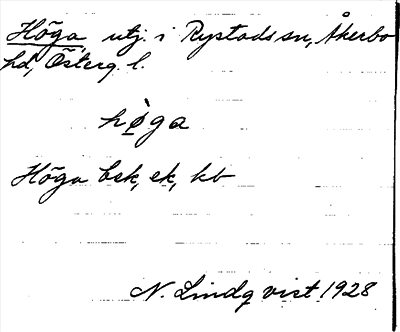 Höga utj. i Rystads sn, Åkerbo
hd, Österg. l.
hø̀ga
Höga bsk, ek, kb
N. Lindqvist 1928